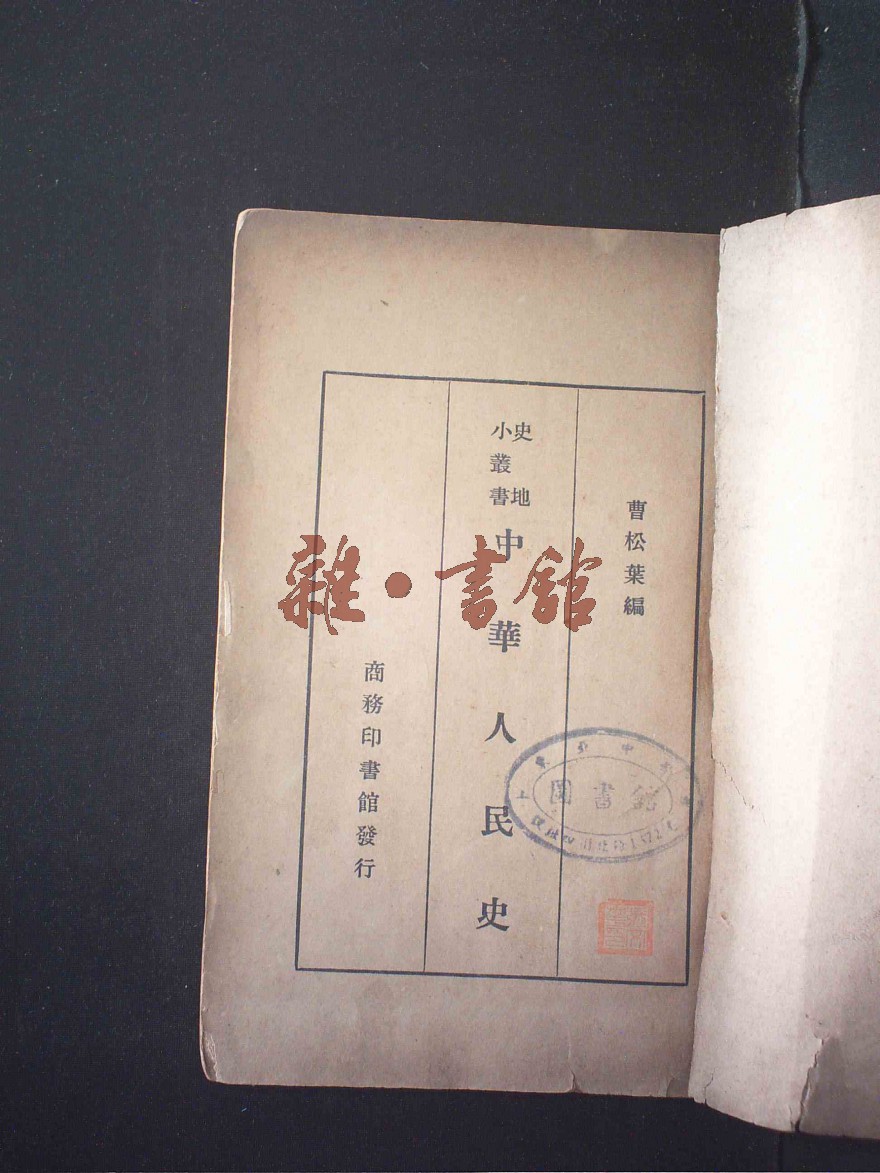 曹松葉編
史地
小叢書
中華人民史
商務印書館發行
雜·書館
圖書館